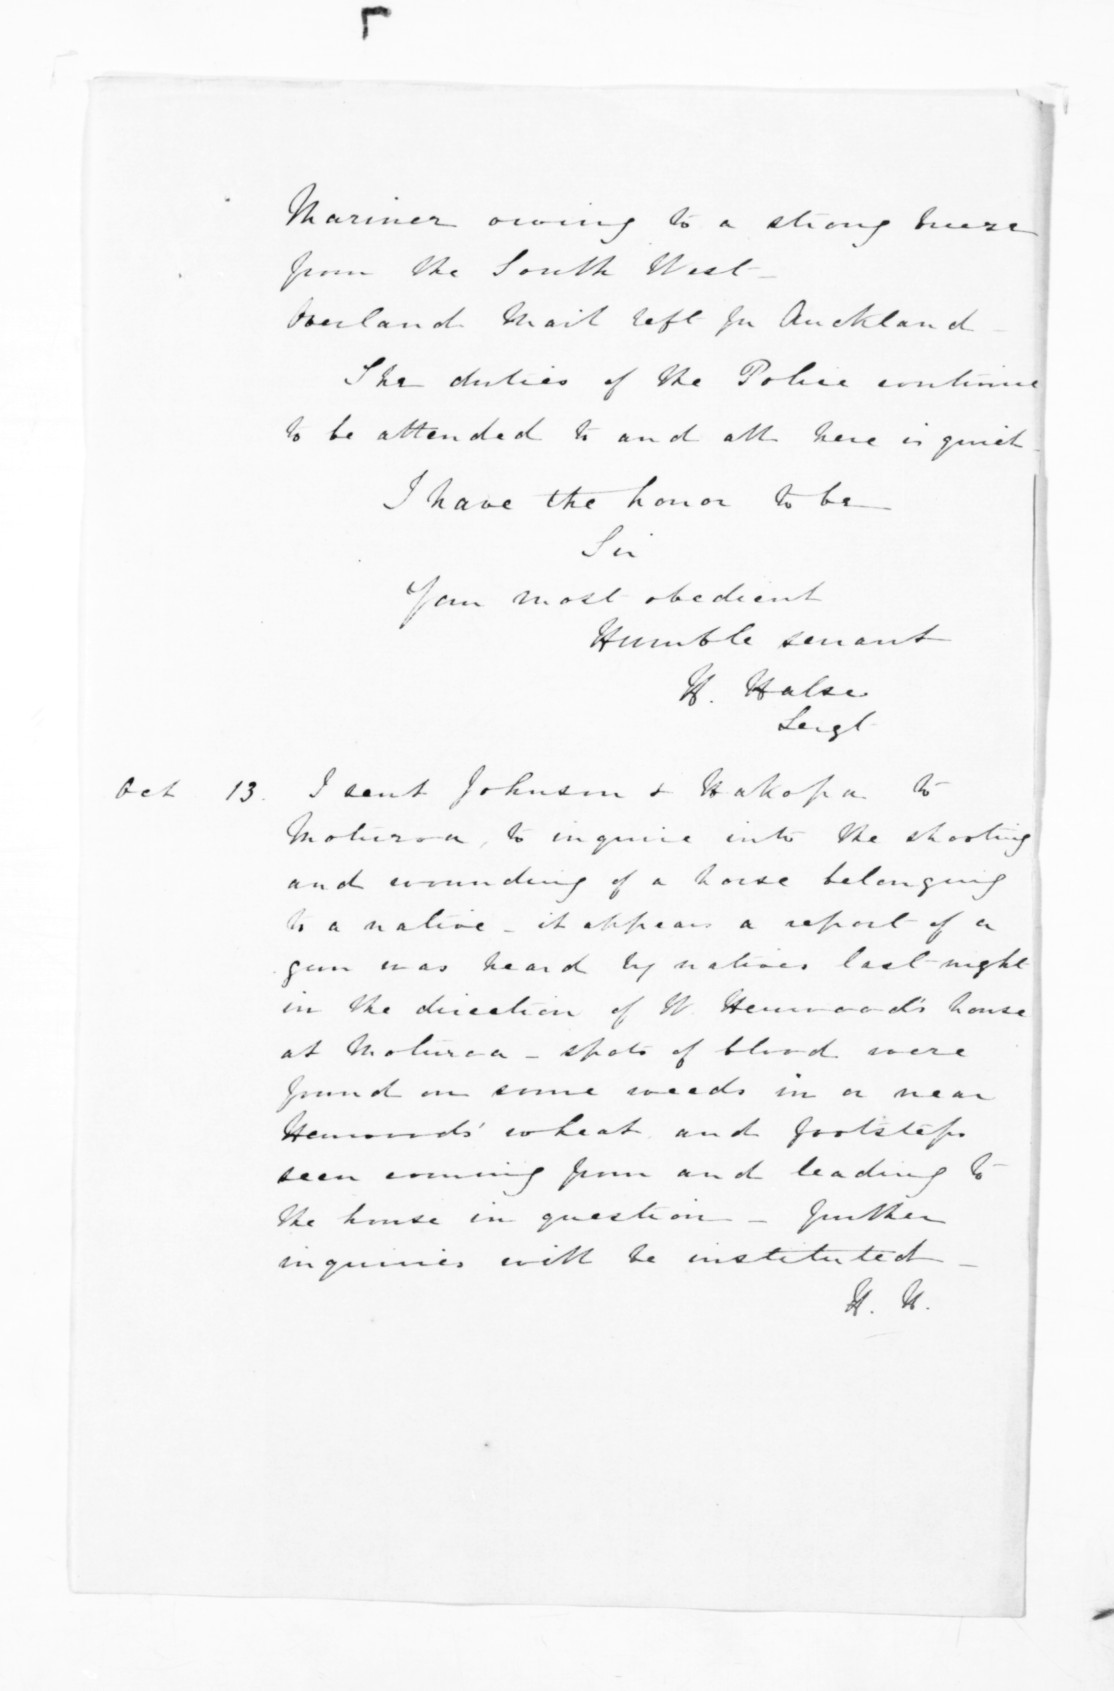 Mariner owing to a strong breeze
from the South West -
Overland Mail left for Auckland -
The duties of the Police continue
to be attended to and all here is quiet -
I have the honor to be
Sir
Your most obedient
Humble servant
H. Halse
Sergt
Oct 13. I sent Johnson & Hakopa to
Moturoa, to inquire into the shooting
and wounding of a horse belonging
to a native - it appears a report of a
gun was heard by natives last night
in the direction of W. Henwood's house
at Moturoa - spots of blood were
found on some weeds in or near
Henwoods' wheat and footsteps
seen coming from and leading to
the house in question - further
inquiries will be instituted -
H. H.